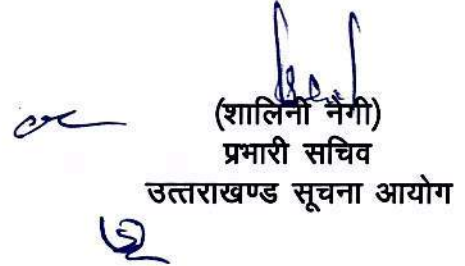 (शालिनी नेगी)
प्रभारी सचिव
उत्तराखण्ड सूचना आयोग